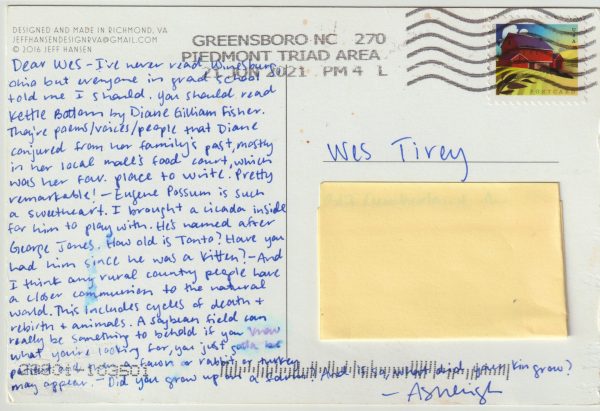 DESIGNED AND MADE IN RICHMOND, VA
JEFFHANSENDESIGNRVA@GMAIL.COM
© 2016 JEFF HANSEN
GREENSBORO NC 270
PIEDMONT TRIAD AREA
21 JUN 2021 PM 4 L
USA
POSTCARD
Dear Wes - I've never read Winesburg,
Ohio but everyone in grad school
told me I should. You should read
Kettle Bottom by Diane Gilliam Fisher.
They're poems/voices/people that Diane
conjured from her family's past, mostly
in her local mall's food court, which
was her fav. place to write. Pretty
remarkable! - Eugene Possum is such
a sweetheart. I brought a cicada inside
for him to play with. He's named after
George Jones. How old is Tonto? Have you
had him since he was a kitten? - And
I think any rural country people have
a closer communion to the natural
world. This includes cycles of death +
rebirth + animals. A soybean field can
really be something to behold if you know
what you're looking for, you just be
or rabbit or turkey
may appear. - Did you grow up on a farm? And if so, what did your kin grow?
- Ashleigh
Wes Tirey